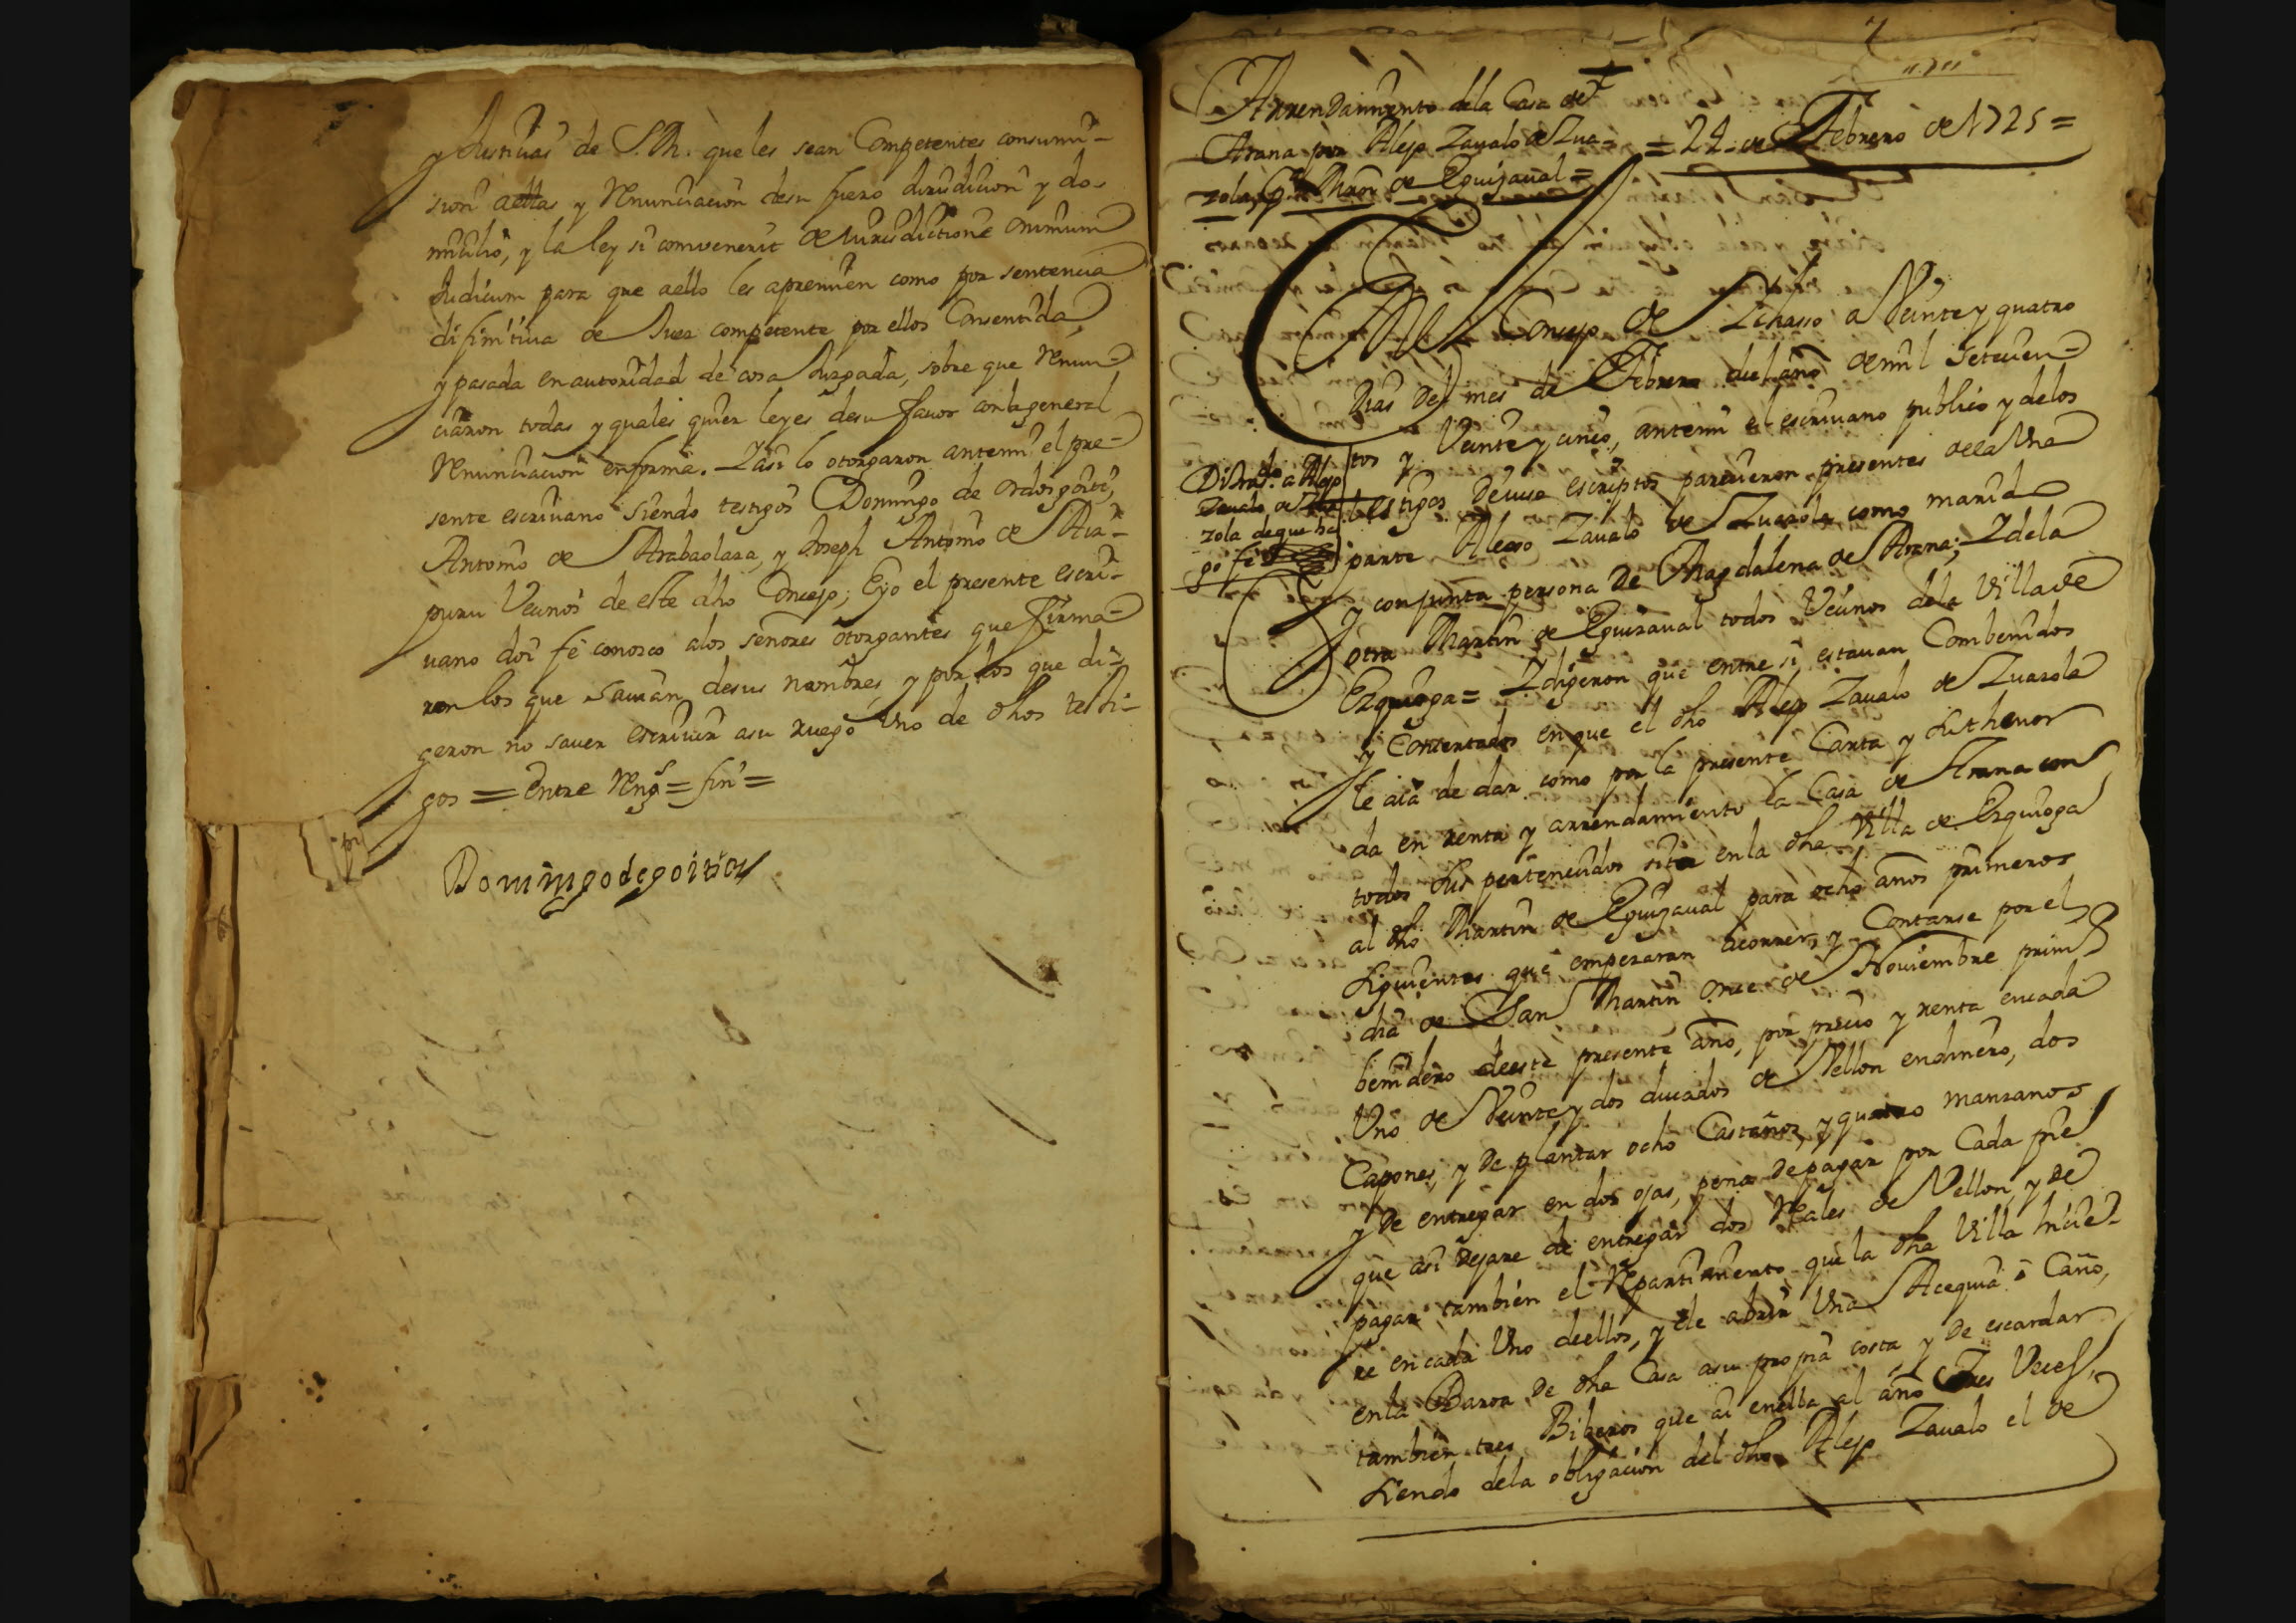 y Justicias de S.M. que les sean Competentes consumi-
sion aellas y Renunciacion desu fuero Jurisdicion y do-
micilio, y la ley si convenerit de Jurisdictione omnium
Judicum para que aello les apremien como por sentencia
difinitiva de Juez competente por ellos Consentida,
y pasada en autoridad de cosa Juzgada, sobre que Renun-
ciaron todas y quales quier leyes desu favor con la general
Renunciacion enforma. Y asi lo otorgaron antemi el pre-
sente escrivano siendo testigos Domingo de Ordosgoiti,
Antonio de Arabaolaza, y Joseph Antonio de
puru Vecinos de este dho Concejo; Eyo el presente escri-
uano doi fé conosco alos señores otorgantes que firma-
ron los que savian, desus nombres, y por los que di-
geron no saver escrivir asu ruego Uno de dhos testi-
gos = Entre Reng.s = fin =
Domingo de goitia
7
Arrendamiento dela Casa de
Arana por Alejo Zavalo de Zua-
zola, a Martin de Eguizaval =
= 24 de Febrero de 1725 =
En el Concejo de Ichasso a Veinte y quatro
Dias del mes de Febrero del año de mil setecien-
tos y Veinte y cinco, antemi el escrivano publico y delos
testigos de iuso escriptos parecieron presentes de la Una
parte Alexo Zavalo de Zuazola como marido
y conjunta persona de Magdalena de Arana; Y dela
otra Martin de Eguizaval todos Vecinos dela Villa de
Ezquioga = Y digeron que entre si estavan Combenidos
y Consertados en que el dho Alejo Zavalo de Zuazola
le aia de dar como por la presente Carta y su thenor
da en renta y arrendamiento la Casa de Arana con
todos sus pertenecidos sita en la dha Villa de Ezquioga
al dho Martin de Eguizaval para ocho años primeros
siguientes que empezaran a correr, y Contarse por el
dia de San Martin once de Noviembre prim.o
benidero deeste presente año, por precio y renta encada
Uno de Veinte y dos ducados de Vellon endinero, dos
Capones, y de plantar ocho Castaños, y quatro manzanos
y de entregar en dos ojas, pena de pagar por Cada pie
que asi dejare de entregar dos Reales de Vellon, y de
pagar tambien el Repartimiento que la dha Villa hicie-
re en cada Uno deellos, y de abrir Una Acequia o Caño,
en la de dha Casa asu propia costa, y de escardar
tambien tres Biberos que ai enella al año tres Veces,
siendo dela obligacion del dho Alejo Zavalo el de
Di tras.do a Alejo
Zavalo de Zua-
zola de que ha-
go fe